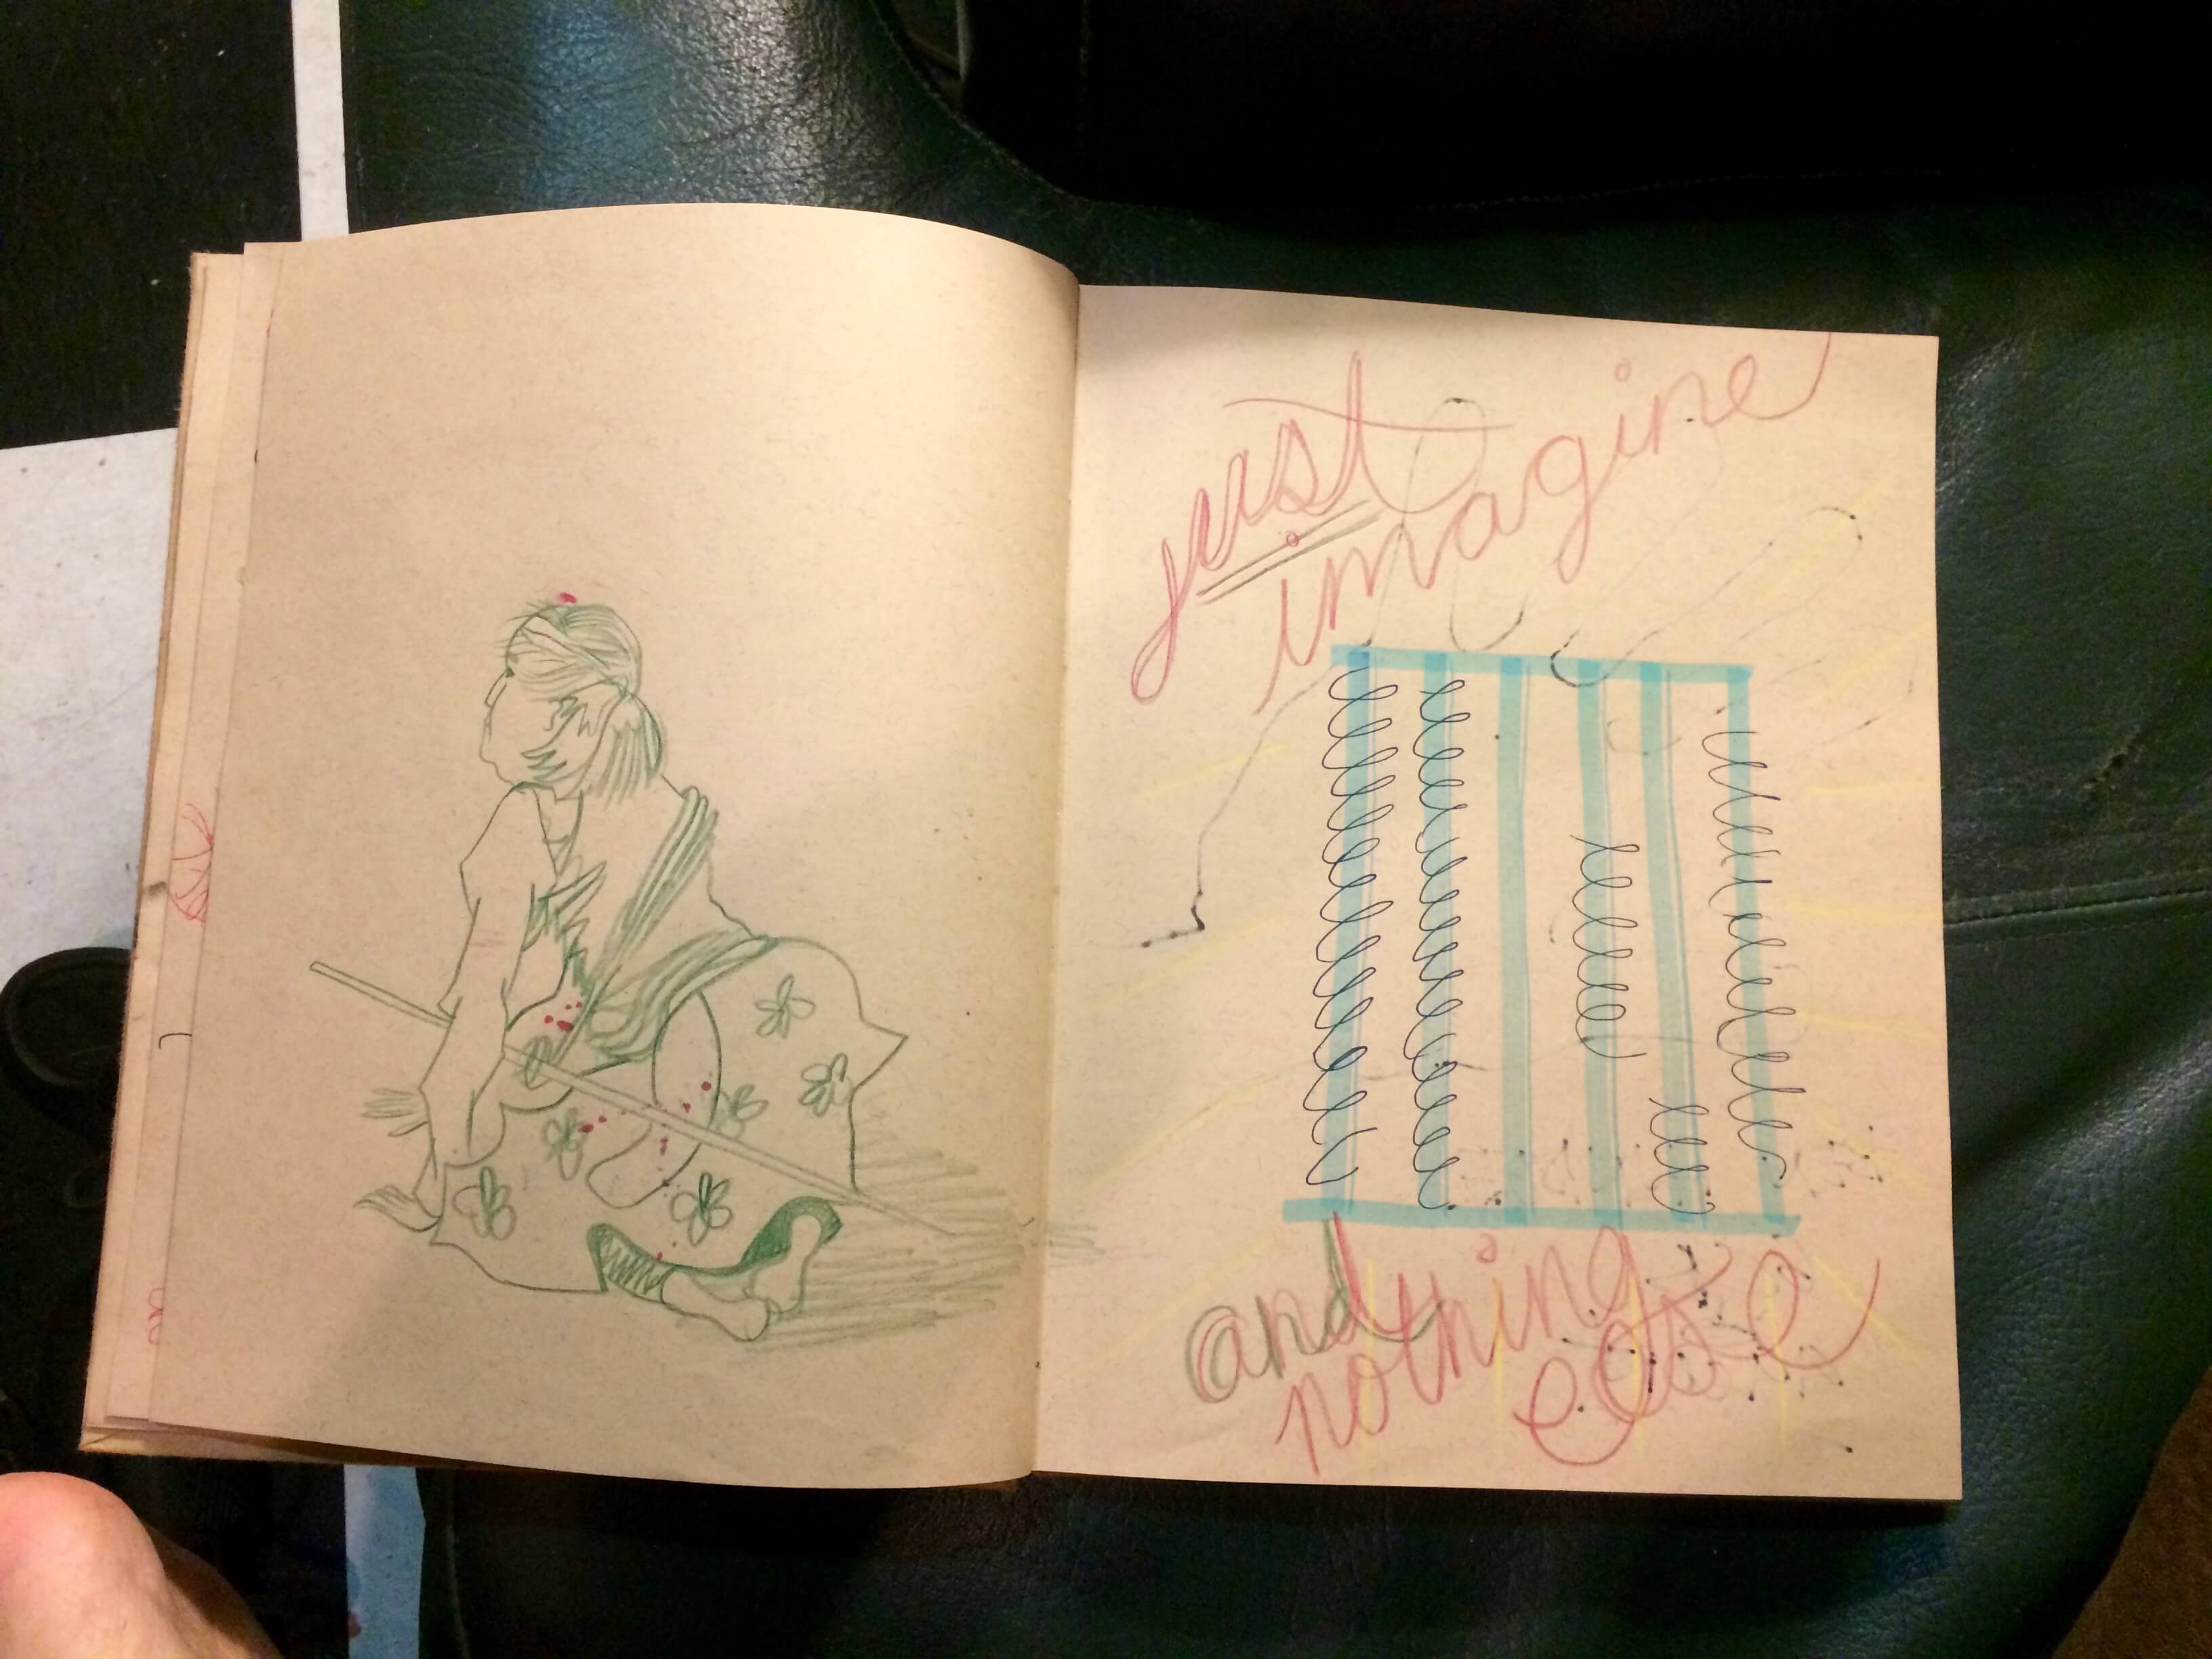 just
imagine
and
nothing
else